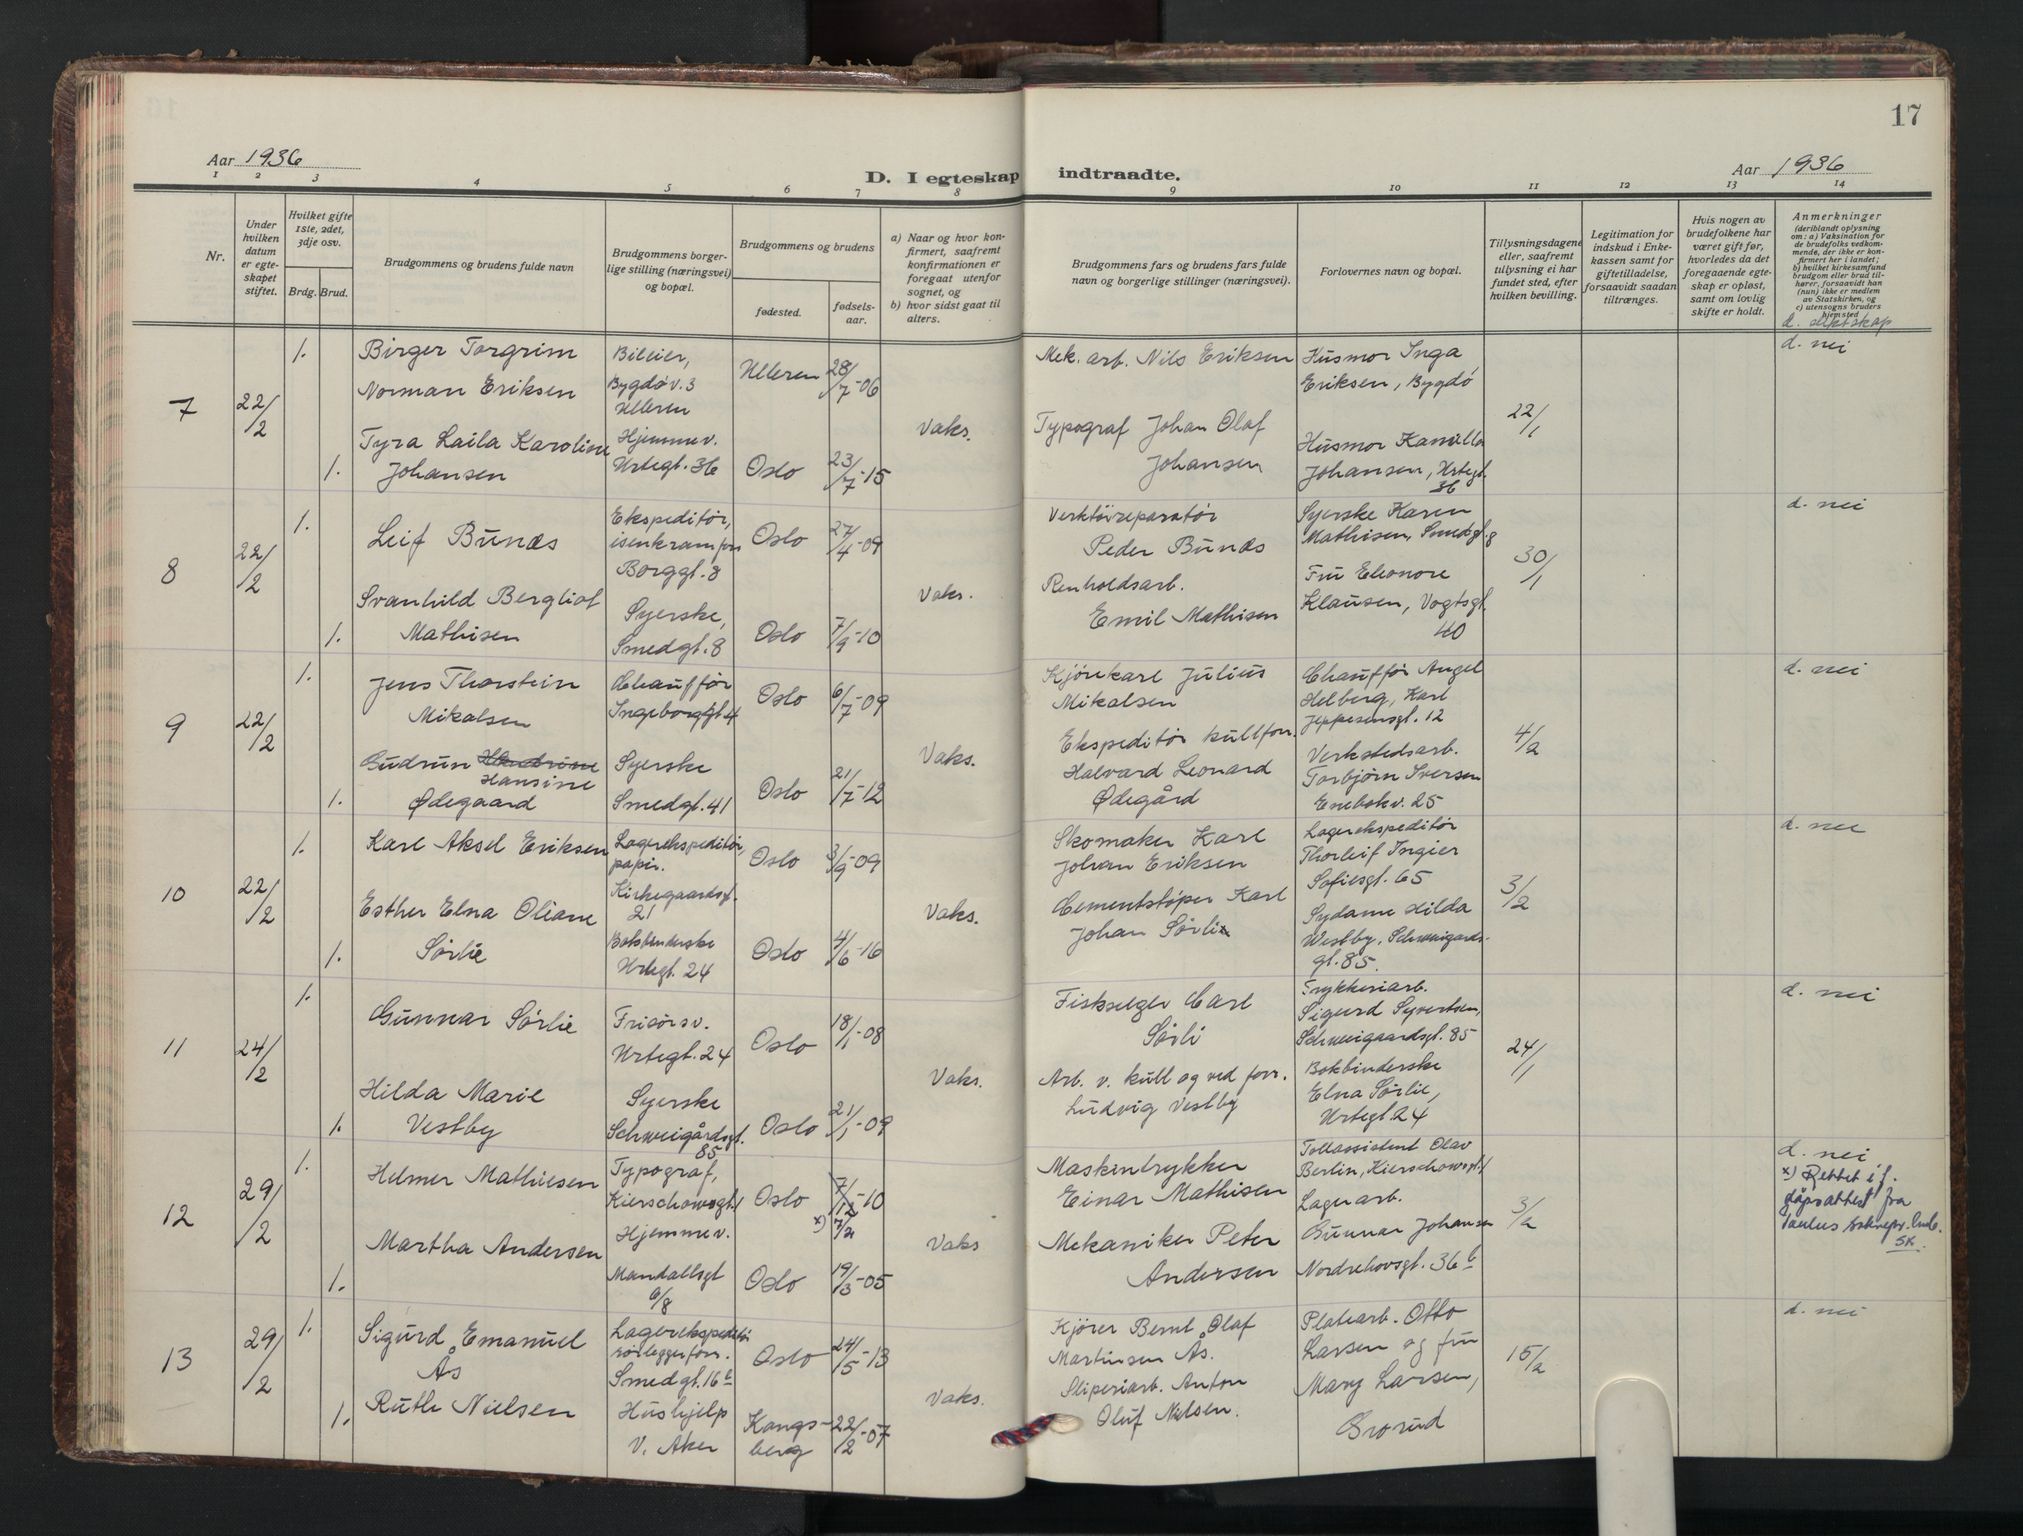 17
Aar 1936
D. I egteskap indtraadte.
Aar 1936
1 2 3 4 5 6 7 8 9 10 11 12 13 14
Nr.
Under hvilken datum er egteskapet stiftet.
Hvilket gifte 1ste, 2det, 3dje osv.
Brdg. Brud.
Brudgommens og brudens fulde navn
Brudgommens borgerlige stilling (næringsvei) og bopæl.
Brudgommens og brudens
fødested.
fødselsaar.
a) Naar og hvor konfirmert, saafremt konfirmationen er foregaat utenfor sognet, og
b) hvor sidst gaat til alters.
Brudgommens fars og brudens fars fulde navn og borgerlige stillinger (næringsvei).
Forlovernes navn og bopæl.
Tillysningsdagene eller, saafremt tullysning ei har fundet sted, efter hvilken bevilling.
Legitimation for indskud i Enkekassen samt for giftetilladelse, forsaavidt saadan tiltrænges.
Hvis nogen av brudefolkene har været gift før, hvorledes da det foregaaende egteskap er opløst, samt om lovlig skifte er holdt.
Anmerkninger
(deriblandt oplysning om: a) Vaksination for de brudefolks vedkommende, der ikke er konfirmert her i landet;
b) hvilket kirkesamfund brudgom eller brud tilhører, forsaavidt han (hun) ikke er medlem av Statskirken, og
c) utensogns bruders hjemsted
d. slektskap
7
22/2
1.
Birger Torgrim
Norman Eriksen
Bileier,
Bygdøv. 3
Ulleren
Ulleren
28/7-06
Vaks.
Mek. arb. Nils Eriksen
Husmor Inga
Eriksen, Bygdø
22/1
d. nei
1.
Tyra Laila Karoline
Johansen
Hjemmev.
Urtegt. 36
Oslo
23/7-15
Typograf Johan Olaf
Johansen
Husmor Kamilla
Johansen, Urtegt.
36
8
22/2
1.
Leif Bunæs
Ekspeditør,
isenkramforr
Borggt. 8
Oslo
27/4-09
Vaks.
Verktøireparatør
Peder Bunæs
Syerske Karen
Mathisen, Smedgt. 8
30/1
d. nei
1.
Svanhild Bergliot
Mathisen
Syerske,
Smedgt. 8
Oslo
7/9-10
Renholdsarb.
Emil Mathisen
Fru Eleonore
Klausen, Vogtsgt.
40
9
22/2
1.
Jens Thorstein
Mikalsen
Chauffør
Ingeborggt. 4
Oslo
6/7-09
Vaks.
Kjørekarl Julius
Mikalsen
Chauffør Angel
Helberg, Karl
Jeppesensgt. 12
4/2
d. nei
1.
Gudrun
Hansine
Ødegaard
Syerske
Smedgt. 41
Oslo
21/7-12
Ekspeditør kullforr.
Halvard Leonard
Ødegård
Verkstedsarb.
Torbjørn Iversen
Enebakv. 25
10
22/2
1.
Karl Aksel Eriksen
Lagerekspeditør,
papir.
Kirkegaardsgt.
21
Oslo
3/9-09
Vaks.
Skomaker Karl
Johan Eriksen
Lagerekspeditør
Thorleif Ingier
Sofiesgt. 65
3/2
d. nei
1.
Esther Elna Oliane
Sørlie
Bokbinderske
Urtegt. 24
Oslo
4/6-16
Cementstøper Karl
Johan Sørli
Sydame Hilda
Westby, Schweigaards-
gt. 85.
11
24/2
1.
Gunnar Sørlie
Frisørsv.
Urtegt. 24
Oslo
18/1-08
Vaks.
Fiskselger Carl
Sørli
Trykkeriarb.
Sigurd Syvertsen,
Schweigaardsgt. 85
24/1
d. nei
1.
Hilda Marie
Vestby
Syerske
Schweigårdsgt.
85
Oslo
21/1-09
Arb. v. kull og ved forr.
Ludvig Vestby
Bokbinderske
Elna Sørlie,
Urtegt. 24
12
29/2
1.
Helmer Mathiesen
Typograf,
Kierschowsgt. 1
Oslo
7/12-10
x) 7/2
Vaks
Maskintrykker
Einar Mathisen
Tollassistent Olav
Berlin, Kierschowsgt. 1
3/2
d. nei
x) Rettet i f.
dåpsattest fra
Paulus
SK.
1.
Martha Andersen
Hjemmev.
Mandallsgt
6/8
Oslo
19/3-05
Mekaniker Peter
Andersen
Lagerarb.
Gunnar Johansen
Nordrehovsgt. 36 b
13
29/2
1.
Sigurd Emanuel
Ås
Lagerekspeditør
rørleggerforr.
Smedgt. 16 b
Oslo
24/5-13
Vaks.
Kjører Bernt Olaf
Martinsen Ås.
Platearb. Otto
Larsen og fru
Mary Larsen,
Grorud
15/2
d. nei
1.
Ruth Nielsen
Hushjelp
V. Aker
Kongsberg
22/2-07
Sliperiarb. Anton
Oluf Nielsen.